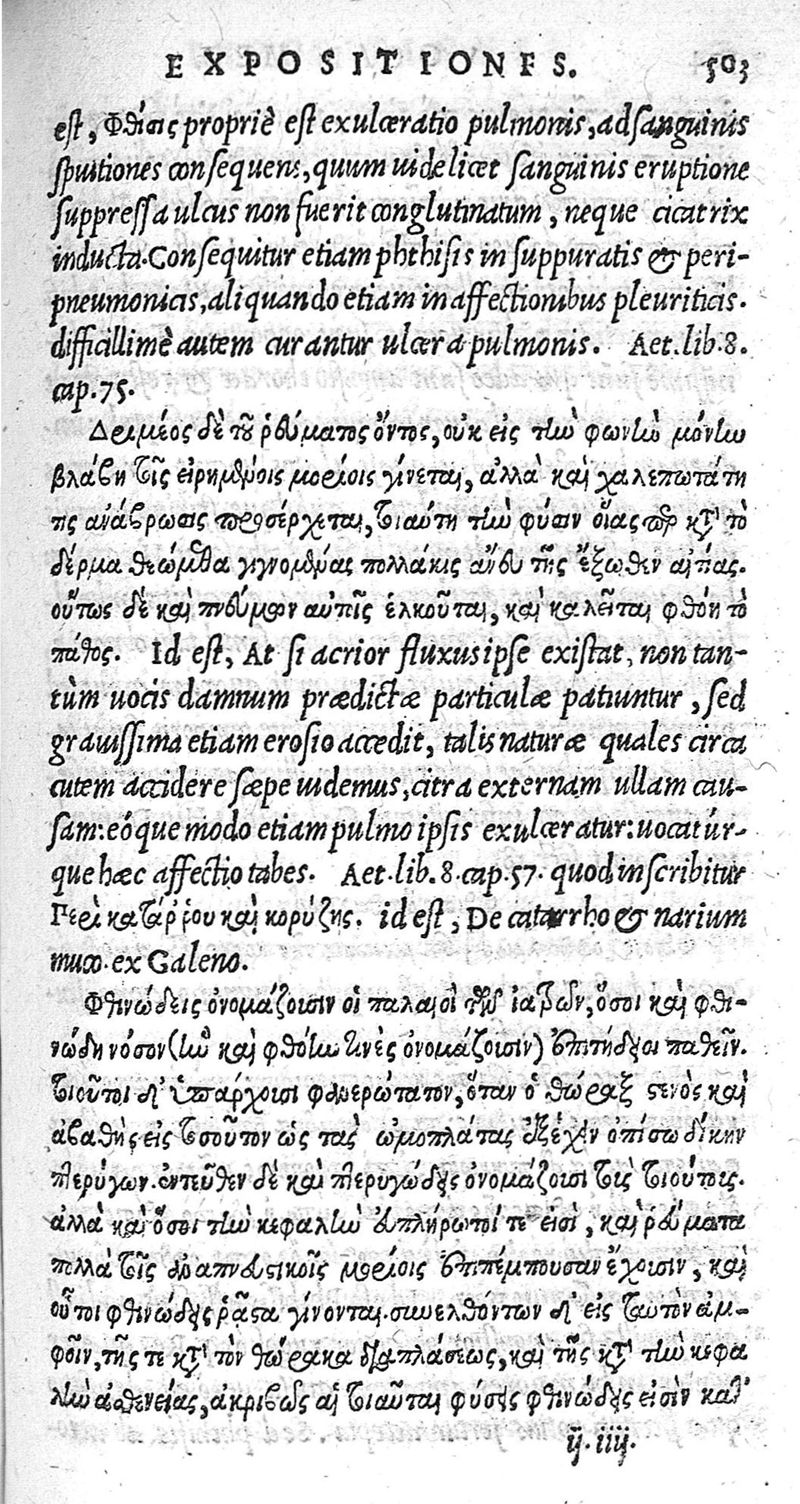 EXPOSITIONES. 503
est, Φθίσις propriè est exulceratio pulmonis, ad sanguinis
sputiones consequens, quum uidelicet sanguinis eruptione
suppressa ulcus non fuerit conglutinatum, neque cicatrix
inducta. Consequitur etiam phthisis in suppuratis & peri-
pneumonicis, aliquando etiam in affectionibus pleuriticis.
difficillimè autem curantur ulcera pulmonis. Aet. lib. 8.
cap. 75.
Δριμέος δὲ τοῦ ῥεύματος ὄντος, οὐκ εἰς τὴν φωνὴν μόνην
βλάβη τοῖς εἰρημένοις μορίοις γίνεται, ἀλλὰ καὶ χαλεπωτάτη
τις ἀνάβρωσις προσέρχεται, τοιαύτη τὴν φύσιν οἵας περ κατὰ τὸ
δέρμα θεώμεθα γιγνομένας πολλάκις ἄνευ τῆς ἔξωθεν αἰτίας.
οὕτως δὲ καὶ πνεύμων αὐτοῖς ἑλκοῦται, καὶ καλεῖται φθόη τὸ
πάθος. Id est, At si acrior fluxus ipse existat, non tan-
tùm uocis damnum prædictæ particulæ patiuntur, sed
grauissima etiam erosio accedit, talis naturæ quales circa
cutem accidere sæpe uidemus, citra externam ullam cau-
sam: eóque modo etiam pulmo ipsis exulceratur: uocatúr-
que hæc affectio tabes. Aet. lib. 8. cap. 57. quod inscribitur
Περὶ κατάρρου καὶ κορύζης. id est, De catarrho & narium
muco. ex Galeno.
Φθινώδεις ὀνομάζουσιν οἱ παλαιοὶ τῶν ἰατρῶν, ὅσοι καὶ φθι-
νώδη νόσον (ἣν καὶ φθόην τινὲς ὀνομάζουσιν) ἐπιτήδειοι παθεῖν.
τοιοῦτοι δ' ὑπάρχουσι φανερώτατον, ὅταν ὁ θώραξ στενὸς καὶ
ἀβαθὴς εἰς τοσοῦτον ὡς τὰς ὠμοπλάτας ἐξέχειν ὀπίσω δίκην
πτερύγων. ἐντεῦθεν δὲ καὶ πτερυγώδεις ὀνομάζουσι τοὺς τοιούτους.
ἀλλὰ καὶ ὅσοι τὴν κεφαλὴν εὐπλήρωτοί τε εἰσὶ, καὶ ῥεύματα
πολλὰ τοῖς ἀναπνευστικοῖς μορίοις ἐπιπέμπουσαν ἔχουσιν, καὶ
οὗτοι φθινώδεις ῥᾷστα γίνονται. συνελθόντων δ' εἰς ταυτὸν ἀμ-
φοῖν, τῆς τε κατὰ τὸν θώρακα διαπλάσεως, καὶ τῆς κατὰ τὴν κεφα
λὴν ἀσθενείας, ἀκριβῶς αἱ τοιαῦται φύσεις φθινώδεις εἰσὶν καθ'
ij. iiij.